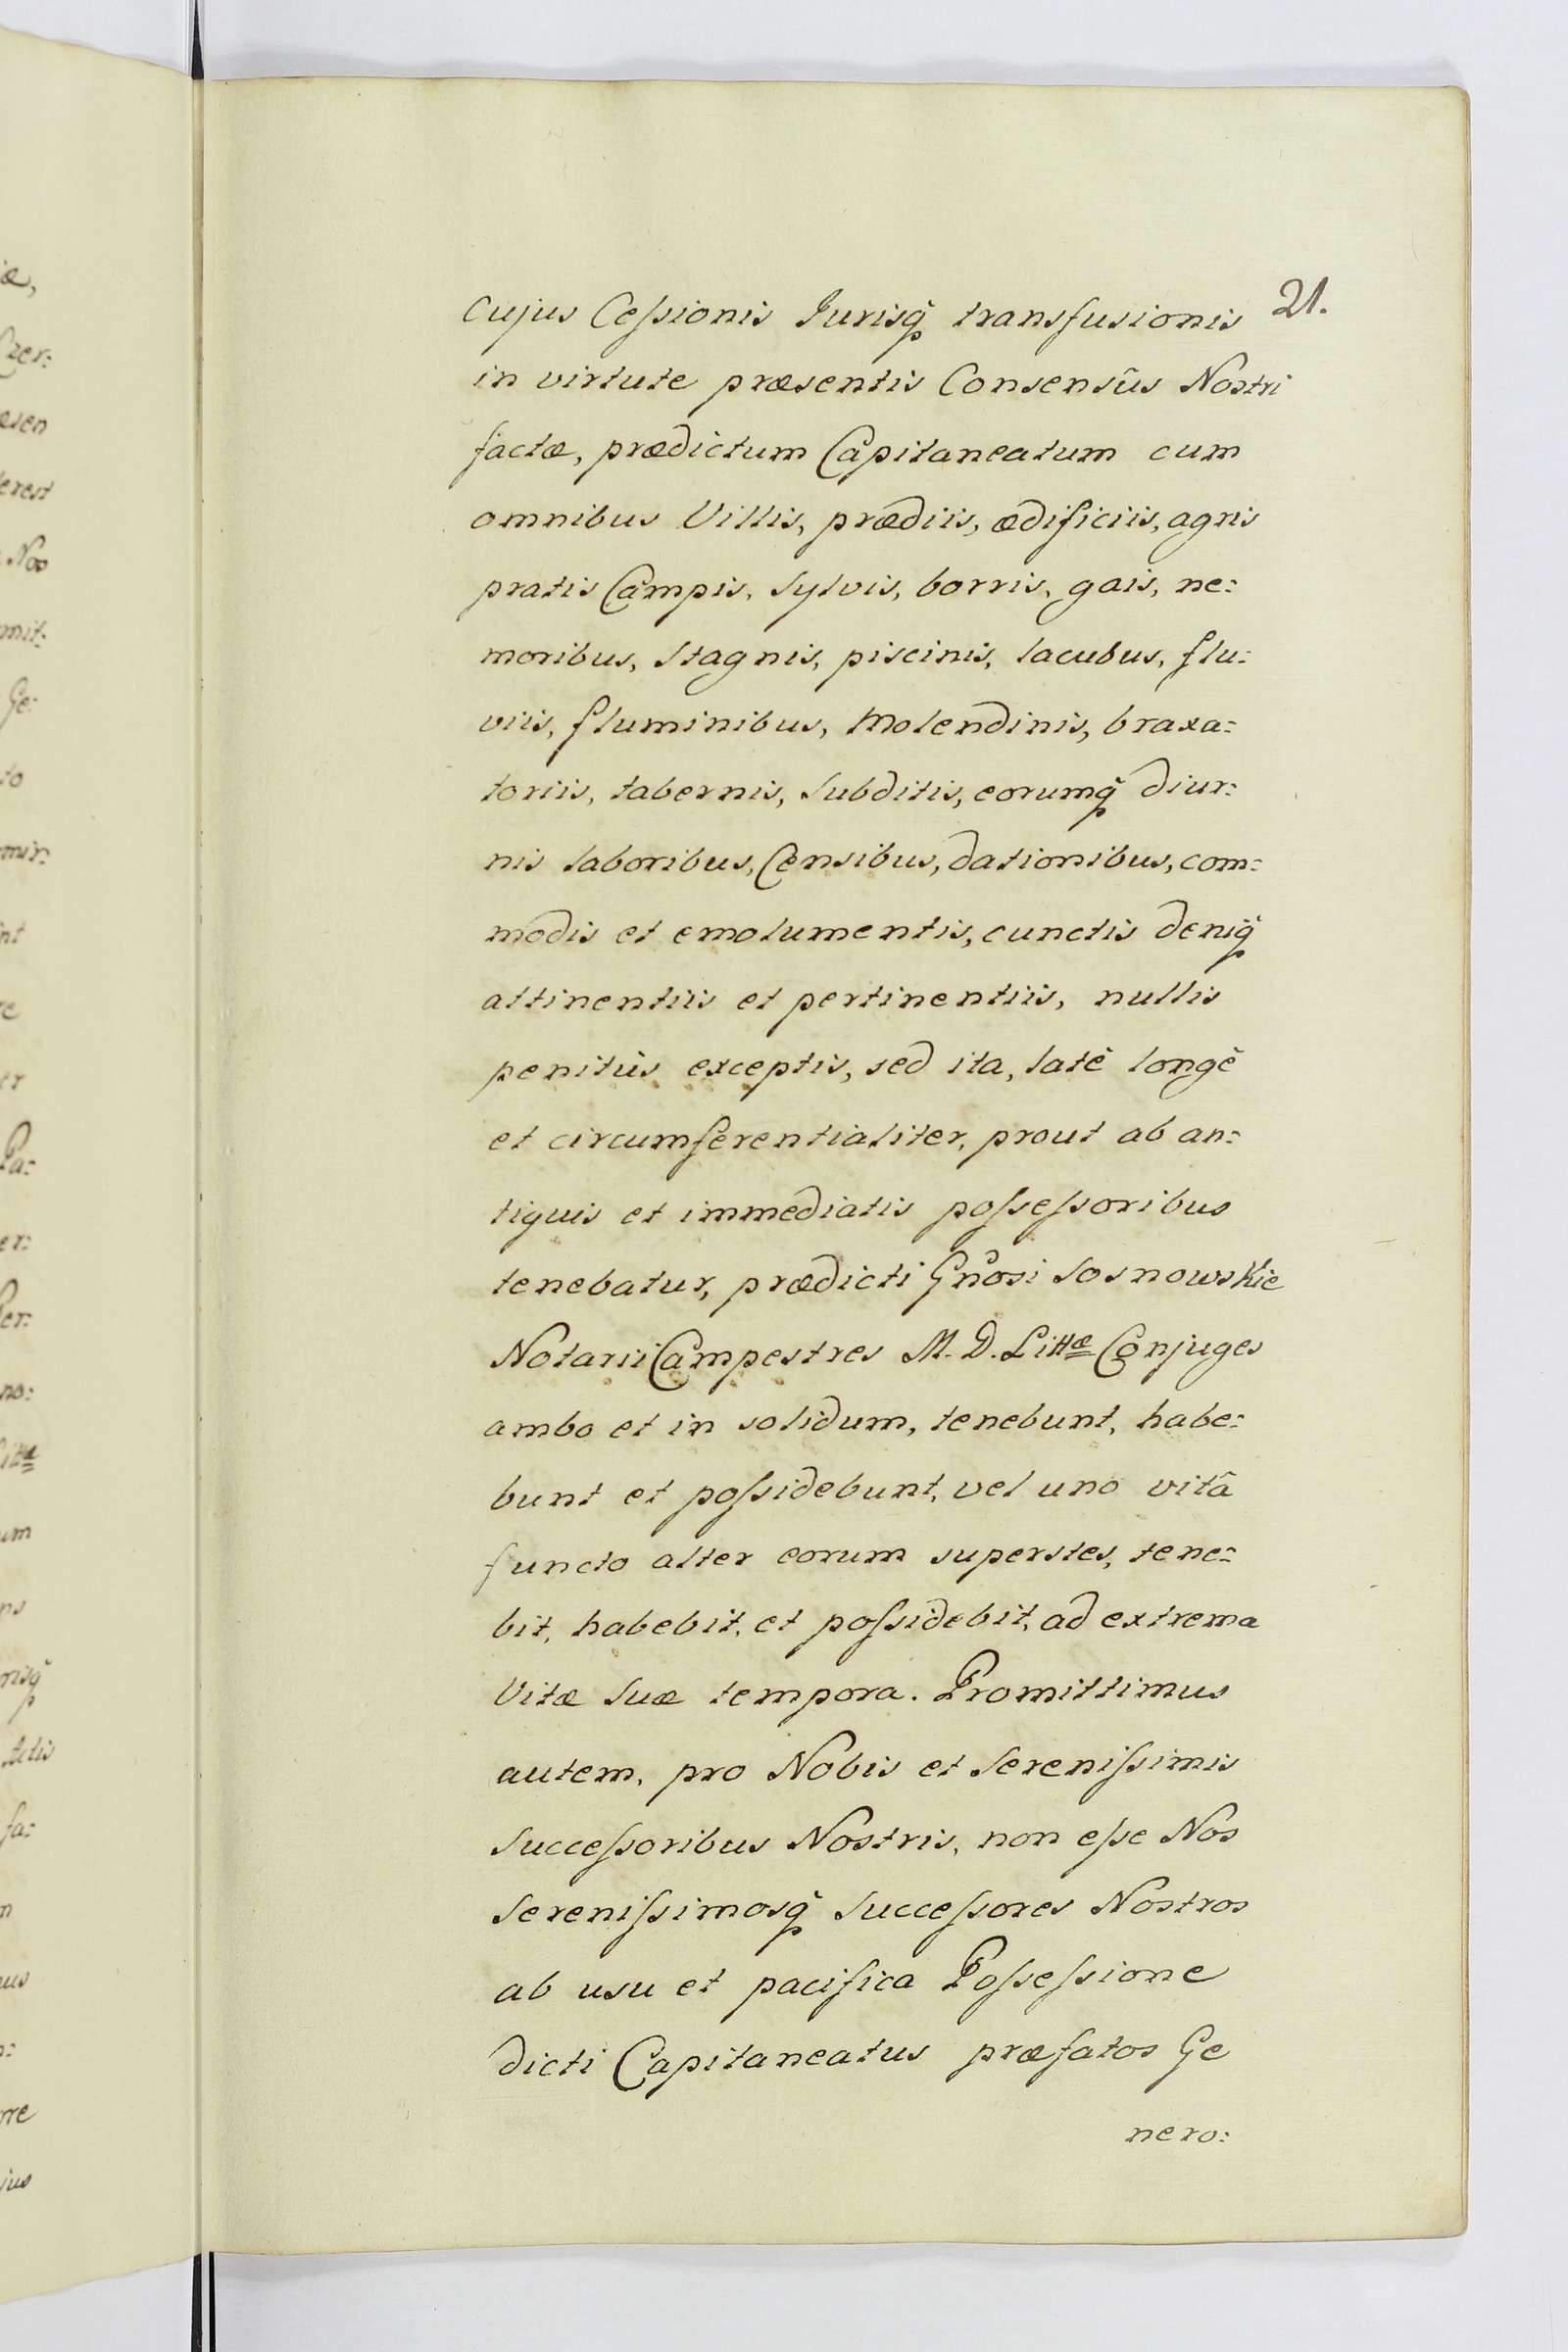 21.
cujus Cessionis Jurisq̃ transfusionis
in virtute præsentis Consensûs Nostri
factæ, prædictum Capitaneatum cum
omnibus Villis, prædiis, ædificiis, agris
pratis Campis, Sylvis, borris, gais, ne:
moribus, Stagnis, piscinis, lacubus, flu:
viis, fluminibus, Molendinis, braxa:
toriis, tabernis, Subditis, eorumq̃ diur:
nis laboribus, Censibus, dationibus, com:
modis et emolumentis, cunctis deniq̃
attinentiis et pertinentiis, nullis
penitùs exceptis, sed ita, latè longè
et circumferentialiter, prout ab an:
tiquis et immediatis possessoribus
tenebatur, prædicti Gñosi Sosnowskie
Notarii Campestres M. D. Littæ Conjuges
ambo et in solidum, tenebunt, habe:
bunt et possidebunt, vel uno vitâ
functo alter eorum superstes, tene:
bit, habebit, et possidebit, ad extrema
Vitæ Suæ tempora. Promittimus
autem, pro Nobis et Serenissimis
Successoribus Nostris, non esse Nos
Serenissimosq̃ Successores Nostros
ab usu et pacifica Possessione
dicti Capitaneatus præfatos Ge
nero:
iæ,
Czer:
æsen
terest
Nos
mit:
Ge:
to
mir:
int
re
er
Pa:
er:
Per:
no:
Littæ
um
ns
risq̃
fa:
n
us
rre
jus